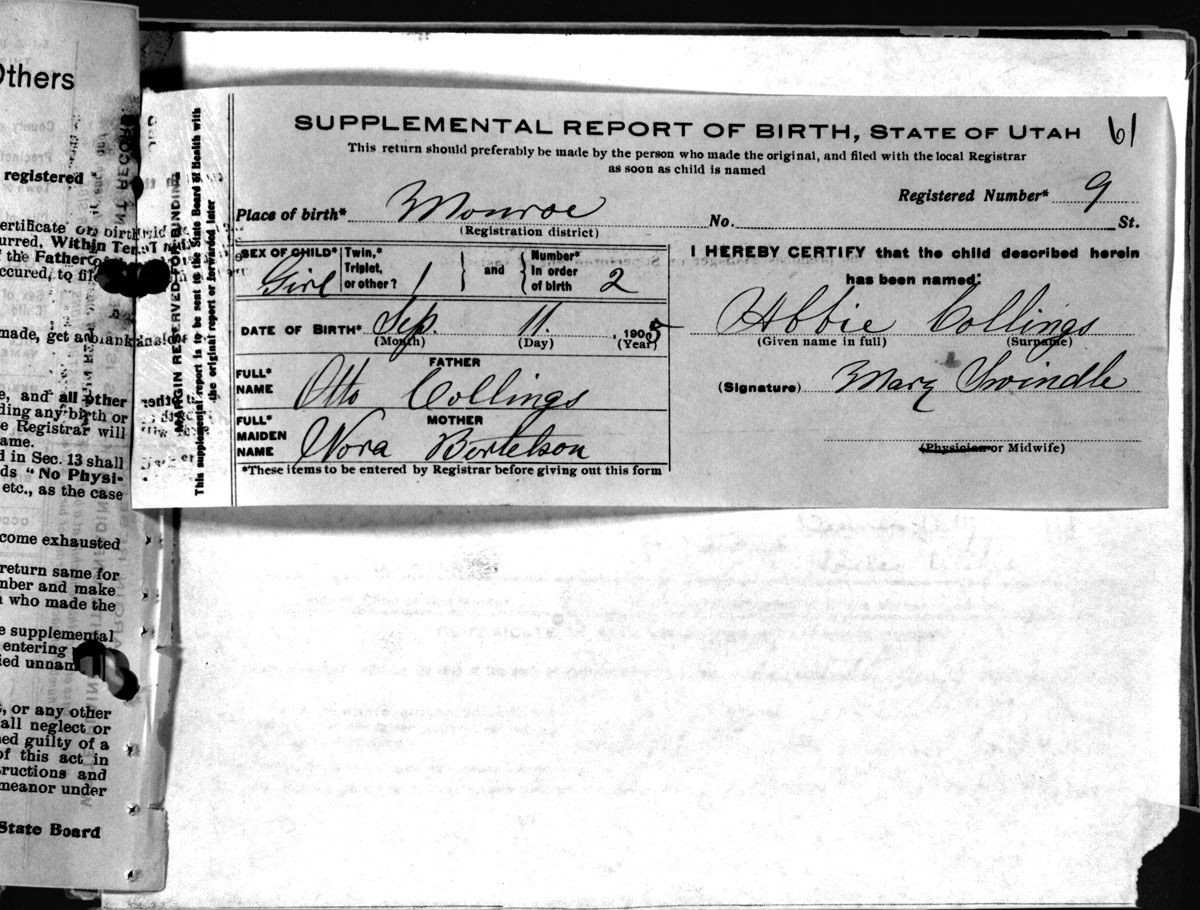 Others
registered
ertificate of birth
urred. Within Ten
f the Father
ccured, to fil
made, get a blank
e, and all other
ding any birth or
e Registrar will
ame.
d in Sec. 13 shall
ds "No Physi-
etc., as the case
come exhausted
return same for
mber and make
n who made the
e supplemental
entering
ied unnam
, or any other
all neglect or
ed guilty of a
of this act in
tructions and
meanor under
State Board
MARGIN RESERVED FOR BINDING
This supplemental report is to be sent to the State Board of Health with
the original report or forwarded later
SUPPLEMENTAL REPORT OF BIRTH, STATE OF UTAH 61
This return should preferably be made by the person who made the original, and filed with the local Registrar
as soon as child is named
Registered Number* 9
Place of birth* Monroe No. St.
(Registration district)
SEX OF CHILD* Girl
Twin,* Triplet, or other? 1 and Number* in order of birth 2
DATE OF BIRTH* Sep. 11. , 1905
(Month) (Day) (Year)
FATHER
FULL* NAME Otto Collings
MOTHER
FULL* MAIDEN NAME Nora Bertelson
*These items to be entered by Registrar before giving out this form
I HEREBY CERTIFY that the child described herein
has been named:
Abbie Collings
(Given name in full) (Surname)
(Signature) Mary Swindle
(Physician or Midwife)